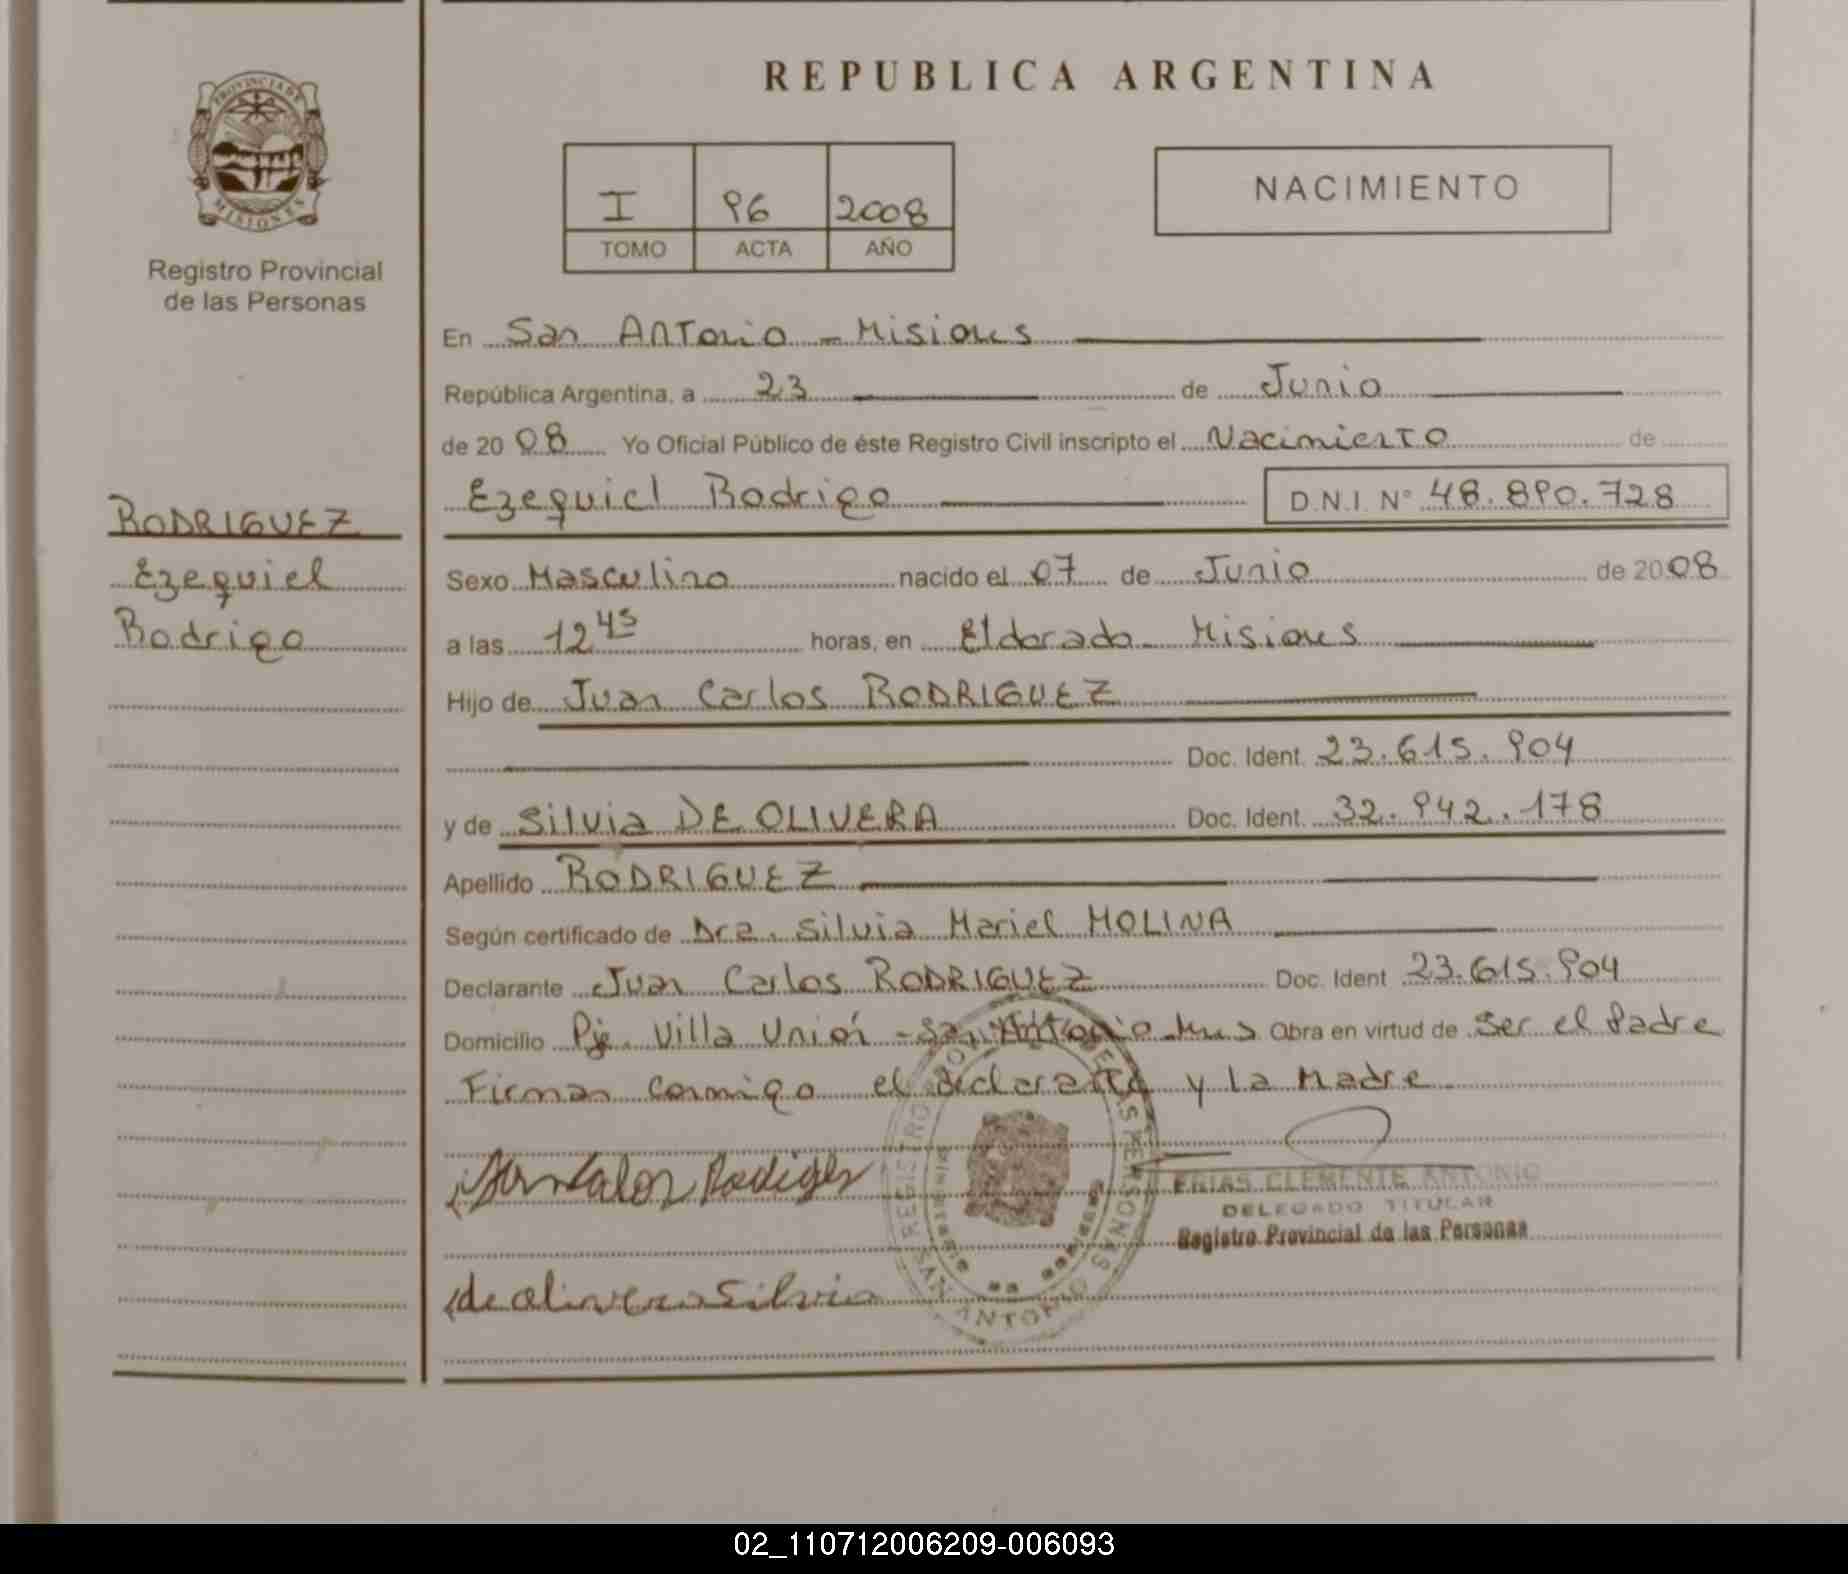 REPUBLICA ARGENTINA
PROVINCIA DE
MISIONES
Registro Provincial
de las Personas
I 96 2008
TOMO ACTA AÑO
NACIMIENTO
En San Antonio - Misiones
República Argentina, a 23 de Junio
de 2008 Yo Oficial Público de éste Registro Civil inscripto el Nacimiento de
Ezequiel Rodrigo D.N.I. N° 48.890.728
RODRIGUEZ
Ezequiel
Rodrigo
Sexo Masculino nacido el 07 de Junio de 2008
a las 12 45 horas, en Eldorado - Misiones
Hijo de Juan Carlos RODRIGUEZ
Doc. Ident. 23.615.904
y de Silvia DE OLIVERA Doc. Ident. 32.942.178
Apellido RODRIGUEZ
Según certificado de Dra. Silvia Mariel MOLINA
Declarante Juan Carlos RODRIGUEZ Doc. Ident 23.615.904
Domicilio Pje. Villa Unión - San Antonio Mns Obra en virtud de Ser el Padre
Firman conmigo el declarante y la Madre
Juan Calos Rodigues
FRIAS CLEMENTE ANTONIO
DELEGADO TITULAR
Registro Provincial de las Personas
de olivera Silvia
REGISTRO DE LAS PERSONAS
SAN ANTONIO
02_110712006209-006093